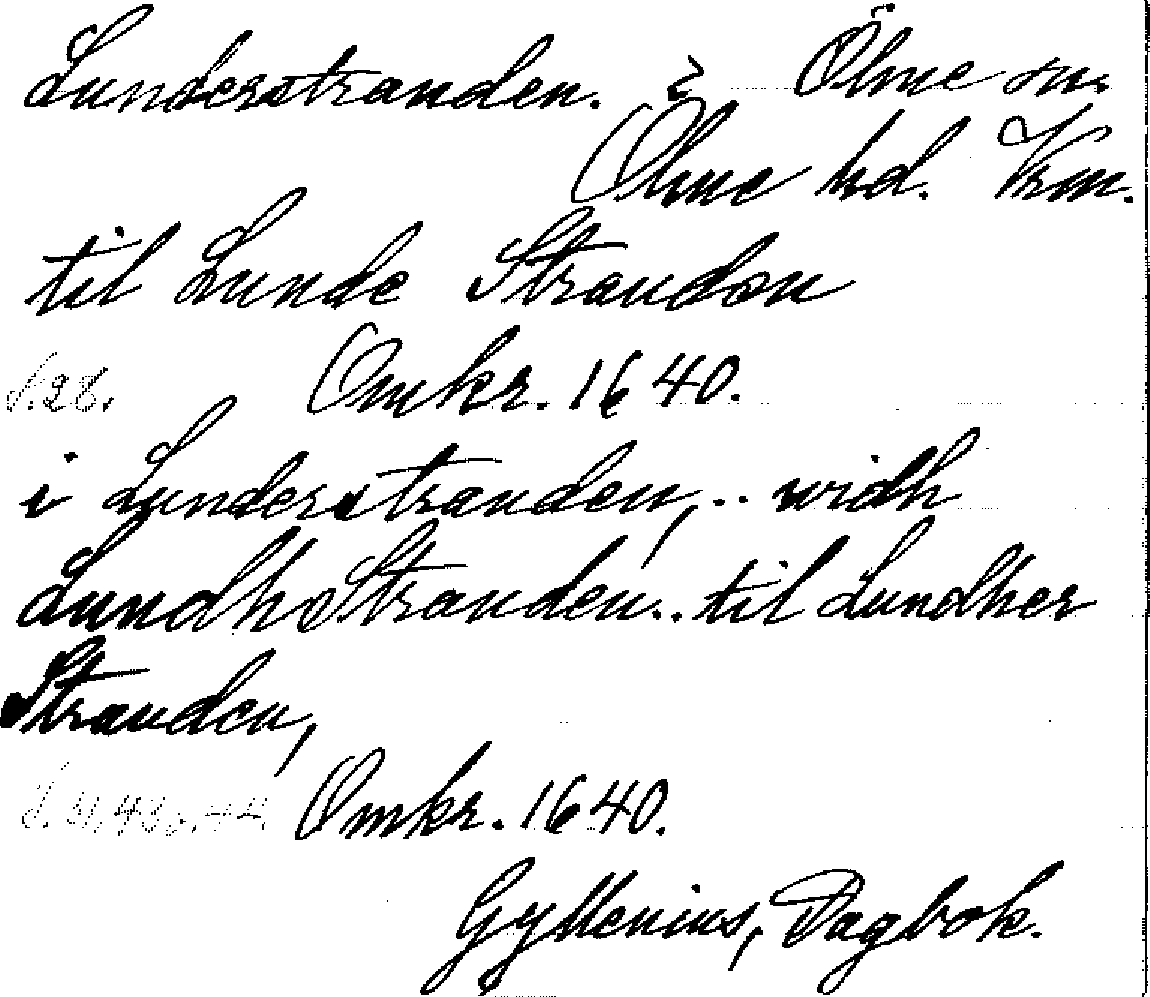 Lunderstranden. Ölme sn.
Ölme hd. Vrm.
til Lunde Stranden
S. 28. Omkr. 1640.
i Lunderstranden, .. widh
Lundhs Stranden .. til Lundher
Stranden,
Omkr. 1640.
Gyllenius, Dagbok.